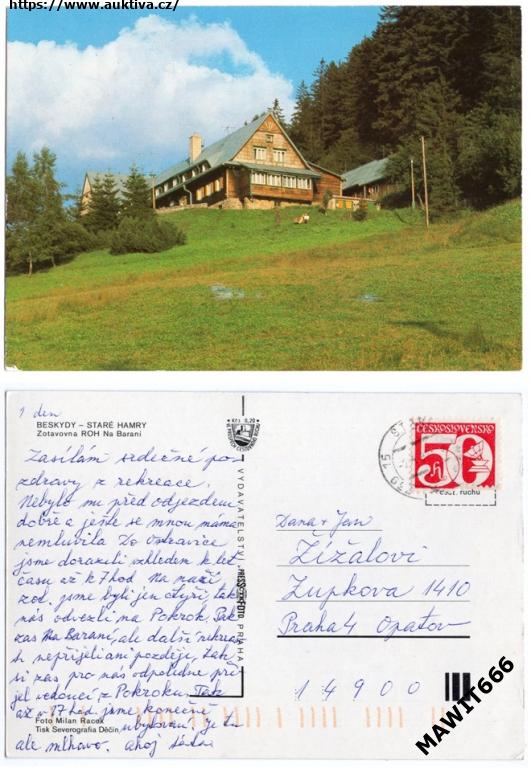 https://www.auktiva.cz/
1 den
BESKYDY – STARÉ HAMRY
Zotavovna ROH Na Baraní
Zasílám srdečné po-
zdravy z rekreace.
Nebylo mi před odjezdem
dobře a ještě se mnou mama
nemluvila Do Ostravice
jsme dorazili vzhledem k let
času až k 7 hod Na naší
zod. jsme byli jen čtyři, tak
nás odvezli na Pokrok. Pak
zas Na Baraní, ale další rekrean
ti nepřijeli ani později, tak
si zas pro nás odpoledne při
jel vedoucí z Pokroku. Tak
až v 17 hod jsme konečně
ubytovaní je tu
ale mlhavo. ahoj
Foto Milan Racek
Tisk Severografia Děčín
Kčs 0,20
VYDAVATELSTVÍ PRESSFOTO PRAHA
ČESKOSLOVENSKO
50 h
15
Dana + Jan
Žížalovi
Zupkova 1410
Praha 4 Opatov
14900
MAWIT666